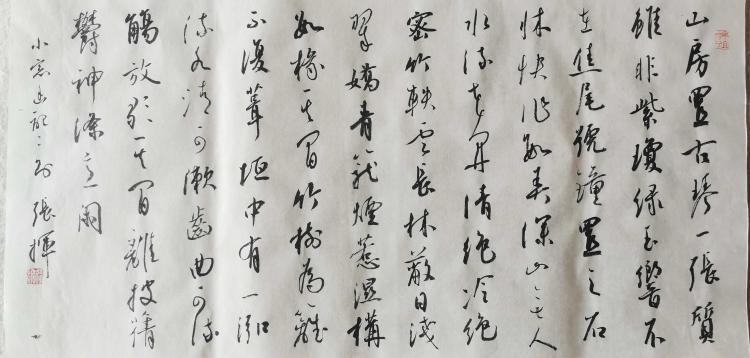 山房置古琴一張質
雖非紫瓊綠玉響不
在焦尾號鐘置之石
床快作數弄深山無人
水流花開清絕冷絕
密竹軼雲長林蔽日淺
翠嬌青籠煙惹濕構
數椽其間竹樹為籬
不復葺垣中有一泓
流水清可漱齒曲可流
觴放歌其間離披蒨
鬱神滌意閑
小窗幽記 張揮